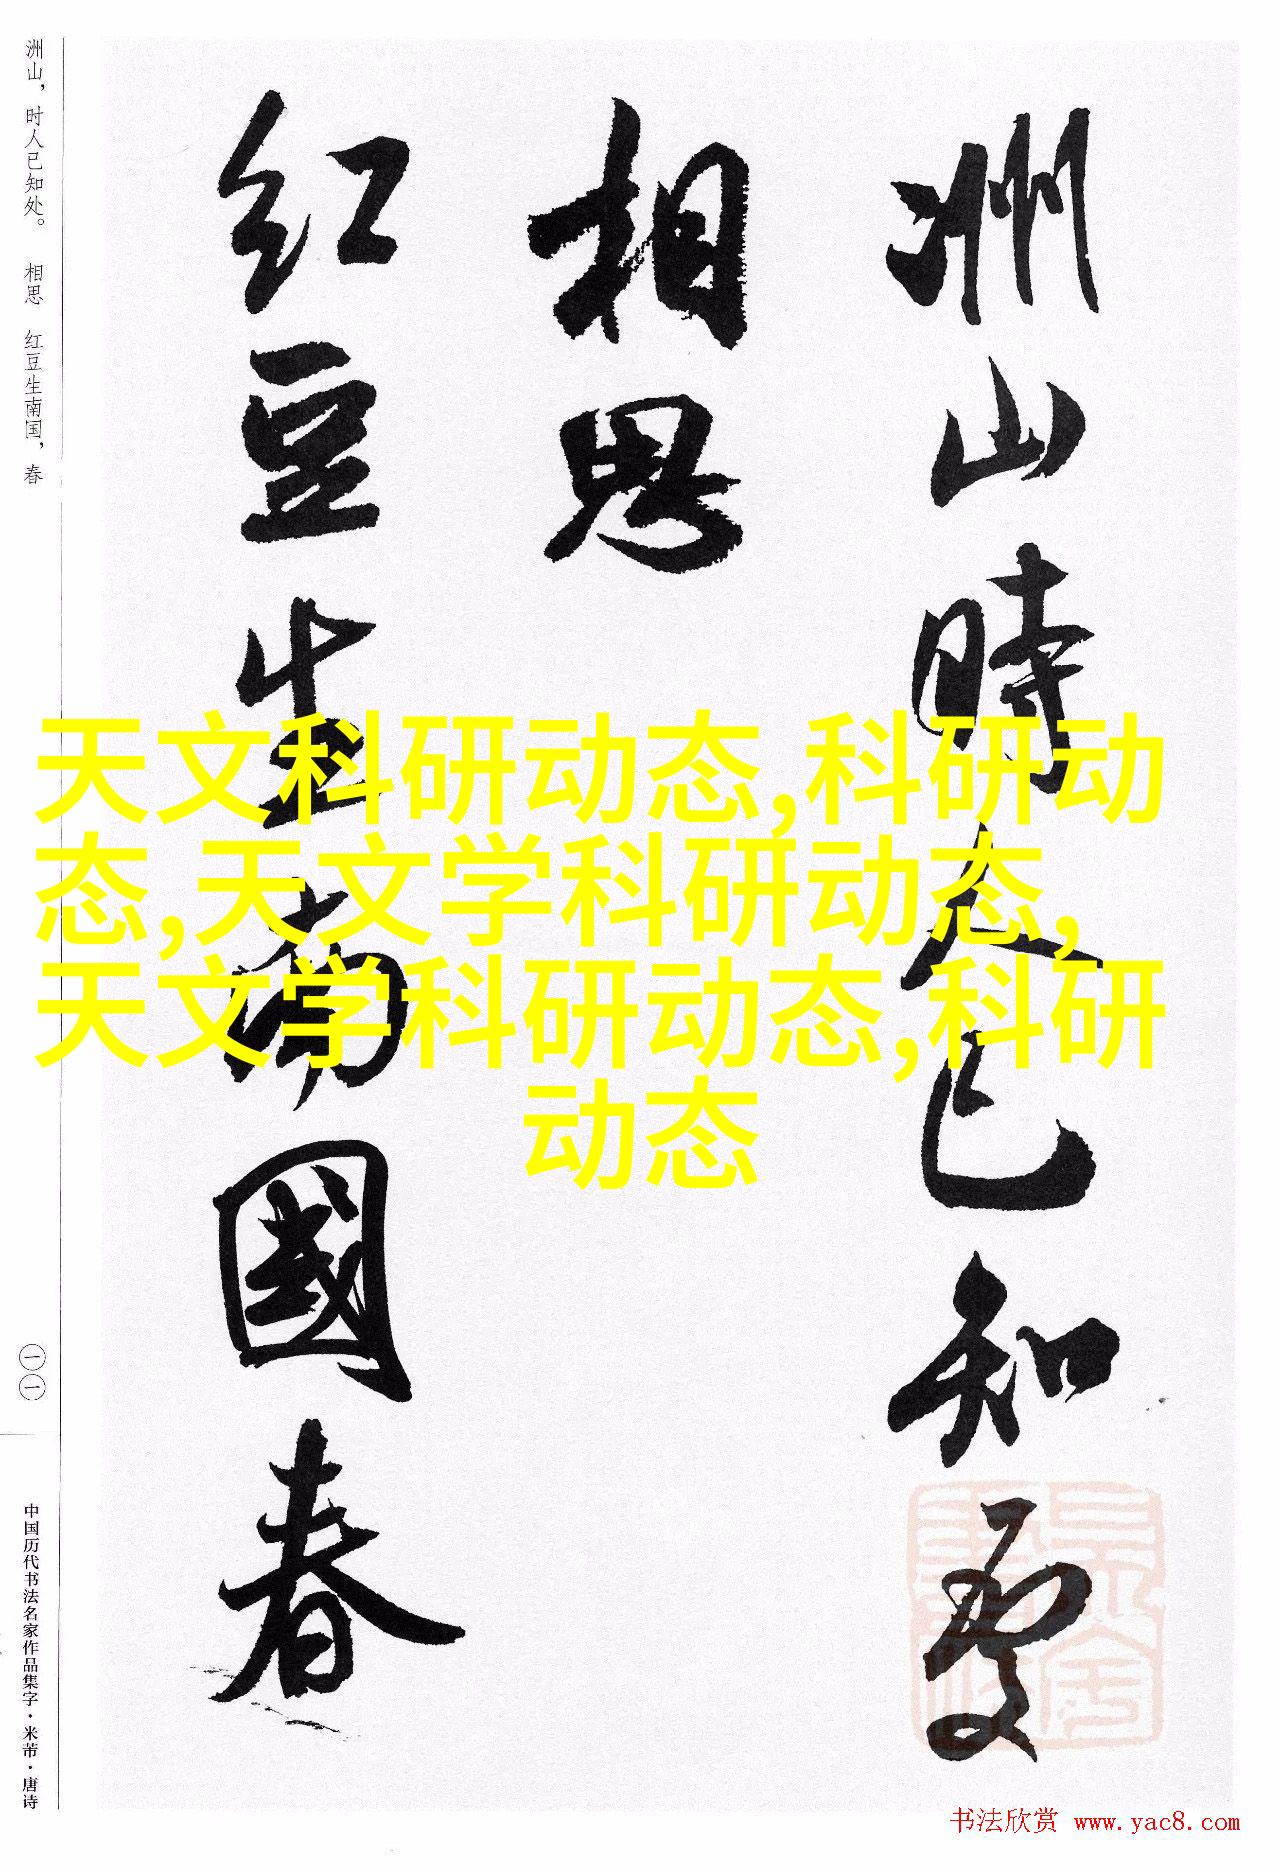 洲山時人已知处
相思
红豆生南國春
洲山，时人已知处。 相思 红豆生南国，春
一一
中国历代书法名家作品集字·米芾·唐诗
天文科研动态,科研动
态,天文学科研动态,
天文学科研动态,科研
动态
书法欣赏 www.yac8.com